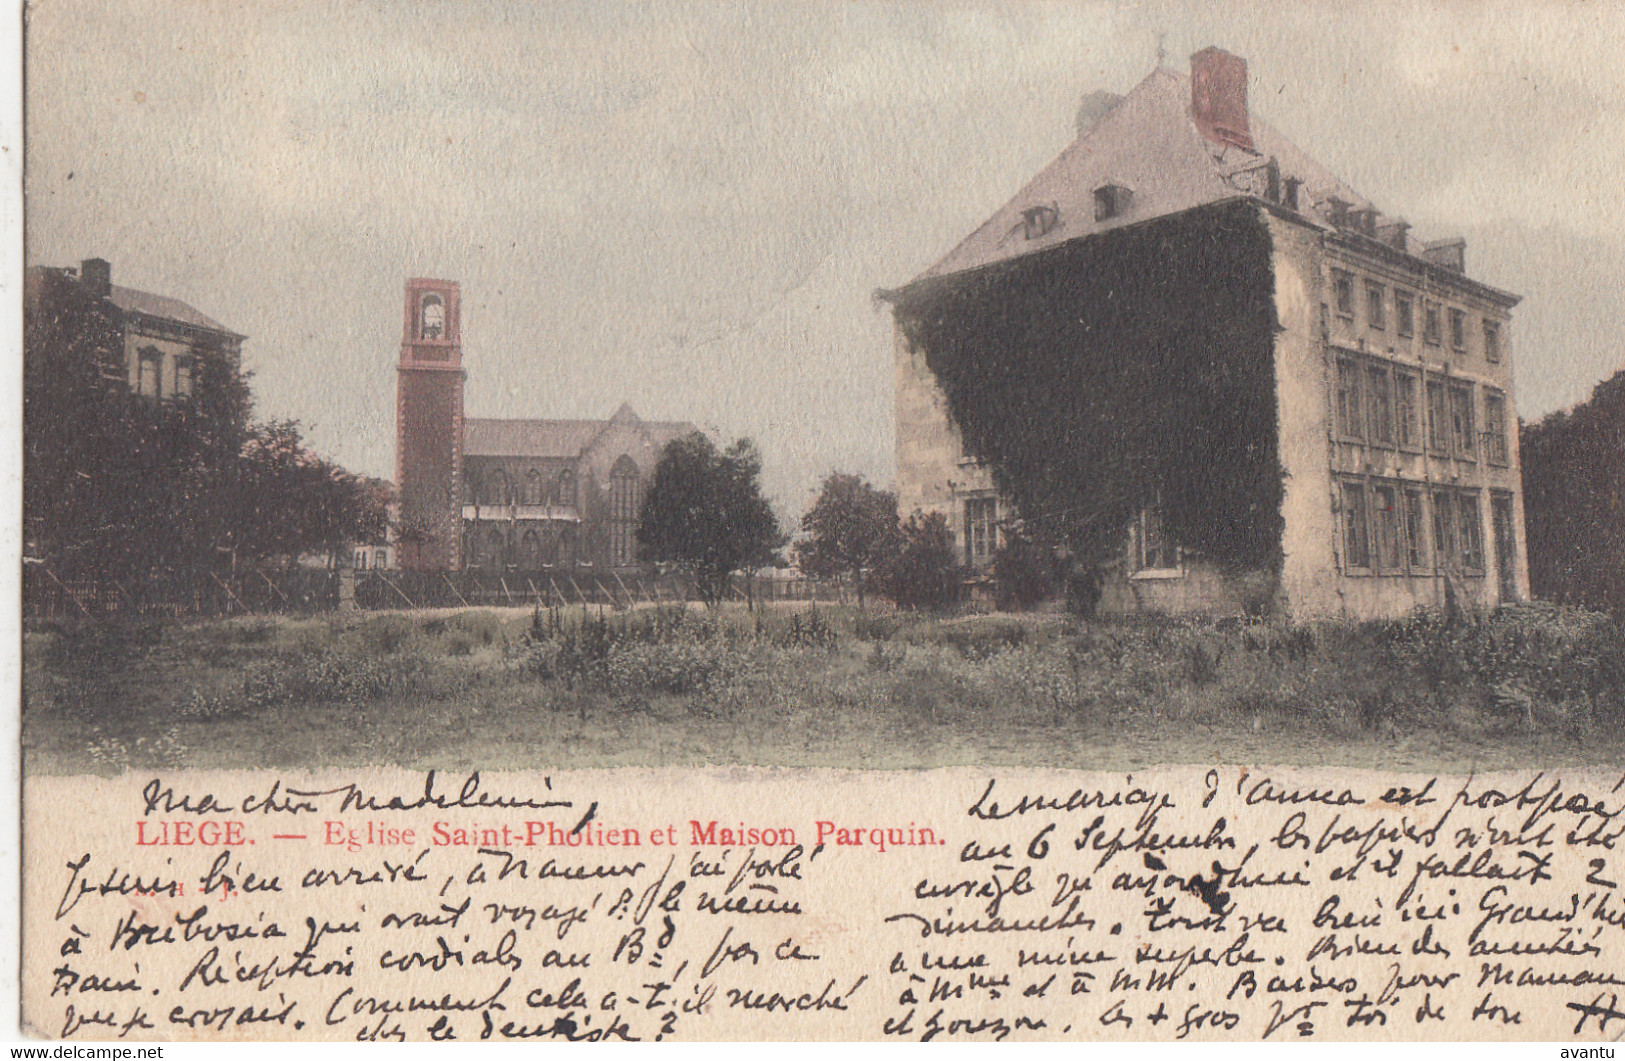 Ma chère Madeleine,
LIEGE. — Eglise Saint-Pholien et Maison Parquin.
Je suis bien arrivé, à Namur j'ai parlé
à qui avait voyagé ds le même
train. Réception cordiale au Bd, pas ce
que je croyais. Comment cela a-t-il marché
chez le dentiste?
Le mariage d'Anna est postposé
au 6 Septembre, les papiers n'ont été
en règle qu'aujourd'hui et il fallait 2
dimanches. Tout va bien ici. Grand'
a une mine superbe. Bien des amitiés
à Mme et à MM. Baisers pour Maman
et les + gros pr toi de ton
www.delcampe.net
avantu